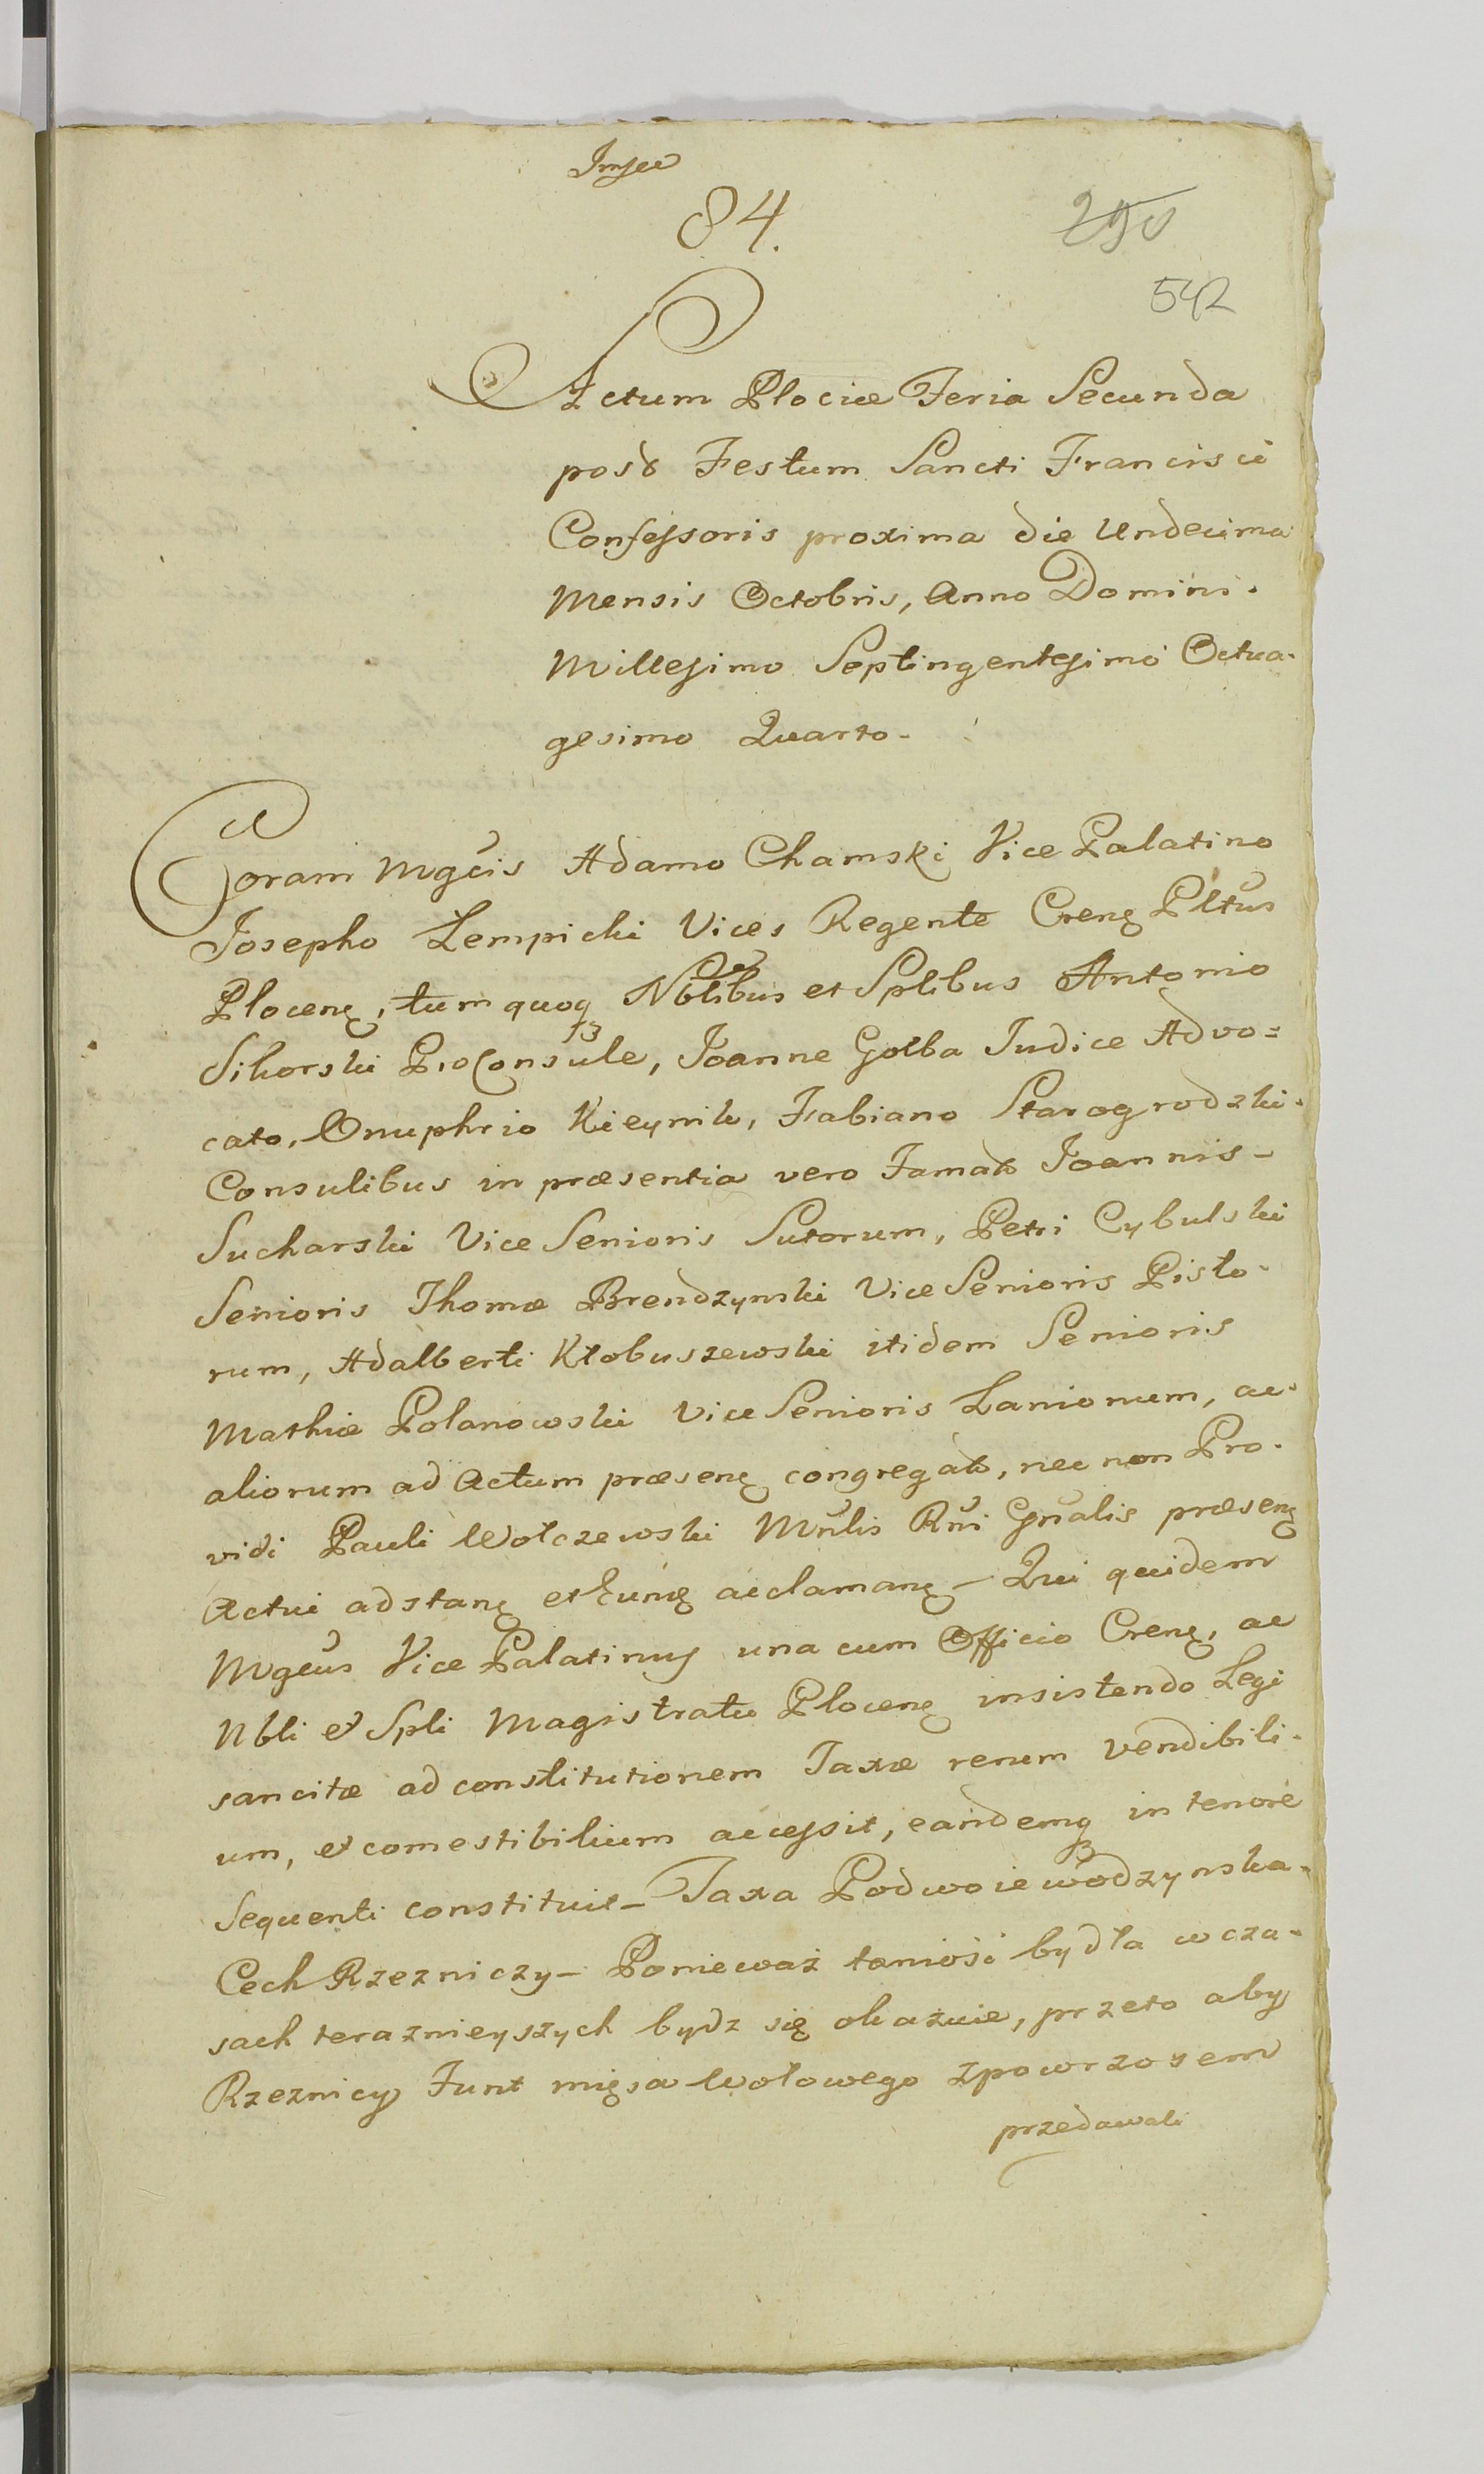 84.
290
542
Actum Plociæ Feria Secunda
post Festum Sancti Francisci
Confessoris proxima die Undecima
Mensis Octobris, Anno Domini
Millesimo Septingentesimo Octua-
gesimo Quarto.
Coram Mgcis Adamo Chamski Vice Palatino
Josepho Lempicki Vices Regente Crenę Pltus
Plocenę, tum quoq Nblibus et Splibus Antonio
Sikorski ProConsule, Joanne Gołba Judice Advo=
cato, Onuphrio Kieynik, Fabiano Starogrodzki
Consulibus in præsentia vero Famat Joannis
Sucharski Vice Senioris Sutorum, Petri Cybulski
Senioris Thomæ Brendzynski Vice Senioris Pisto-
rum, Adalberti Kłobuszewski itidem Senioris
Mathiæ Polanowski Vice Senioris Lanionum, ac
aliorum ad Actum præsenę congregat, nec non Pro-
vidi Pauli Wołczewski Mnlis Rni Gnalis præsenę
Actui adstanę et acclamanę – Qui quidem
Mgcus Vice Palatinus una cum Officio Crenę, ac
Nbli et Spli Magistratu Plocenę insistendo Legi
sancitæ ad constitutionem Taxæ rerum vendibili-
um, et comestibilium accessit, eandemq in tenore
Sequenti constituit – Taxa Podwoiewodzynska
Cech Rzezniczy – Ponieważ taniość bydła w cza-
sach teraznieyszych bydz się okażuie, przeto aby
Rzeznicy Funt mięsa Wołowego z powrozem
przedawali